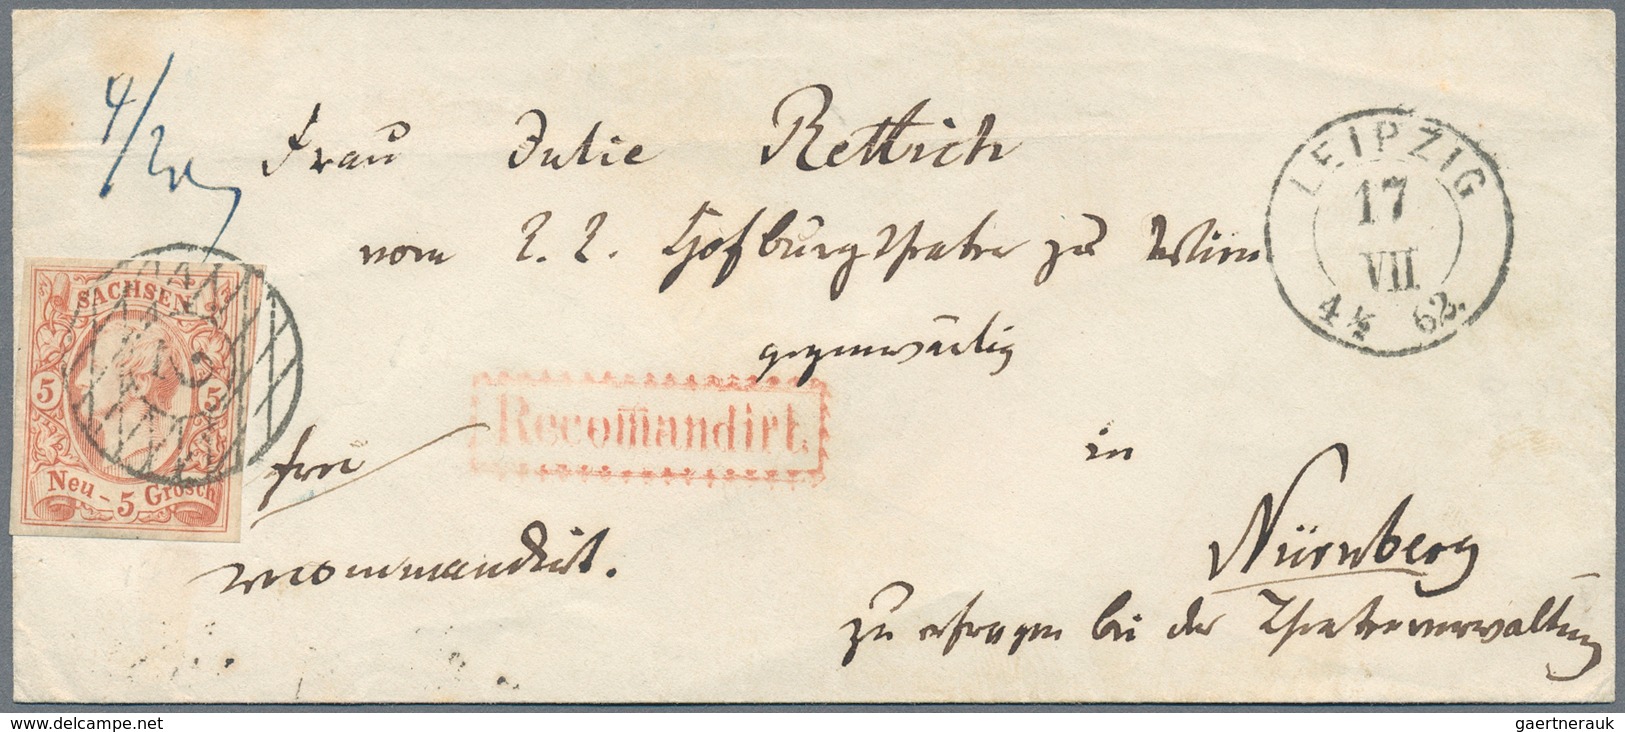 Frau Julie Rettich
vom K. K. Hofburgtheater zu Wien
gegenwärtig
in
Nürnberg
zu erfragen bei der Theaterverwaltung
frei
recommandirt.
Recommandirt.
LEIPZIG
17
VII
4½ 62.
SACHSEN
5 5
Neu-Grosch
5
delcampe.net
gaertnerauk